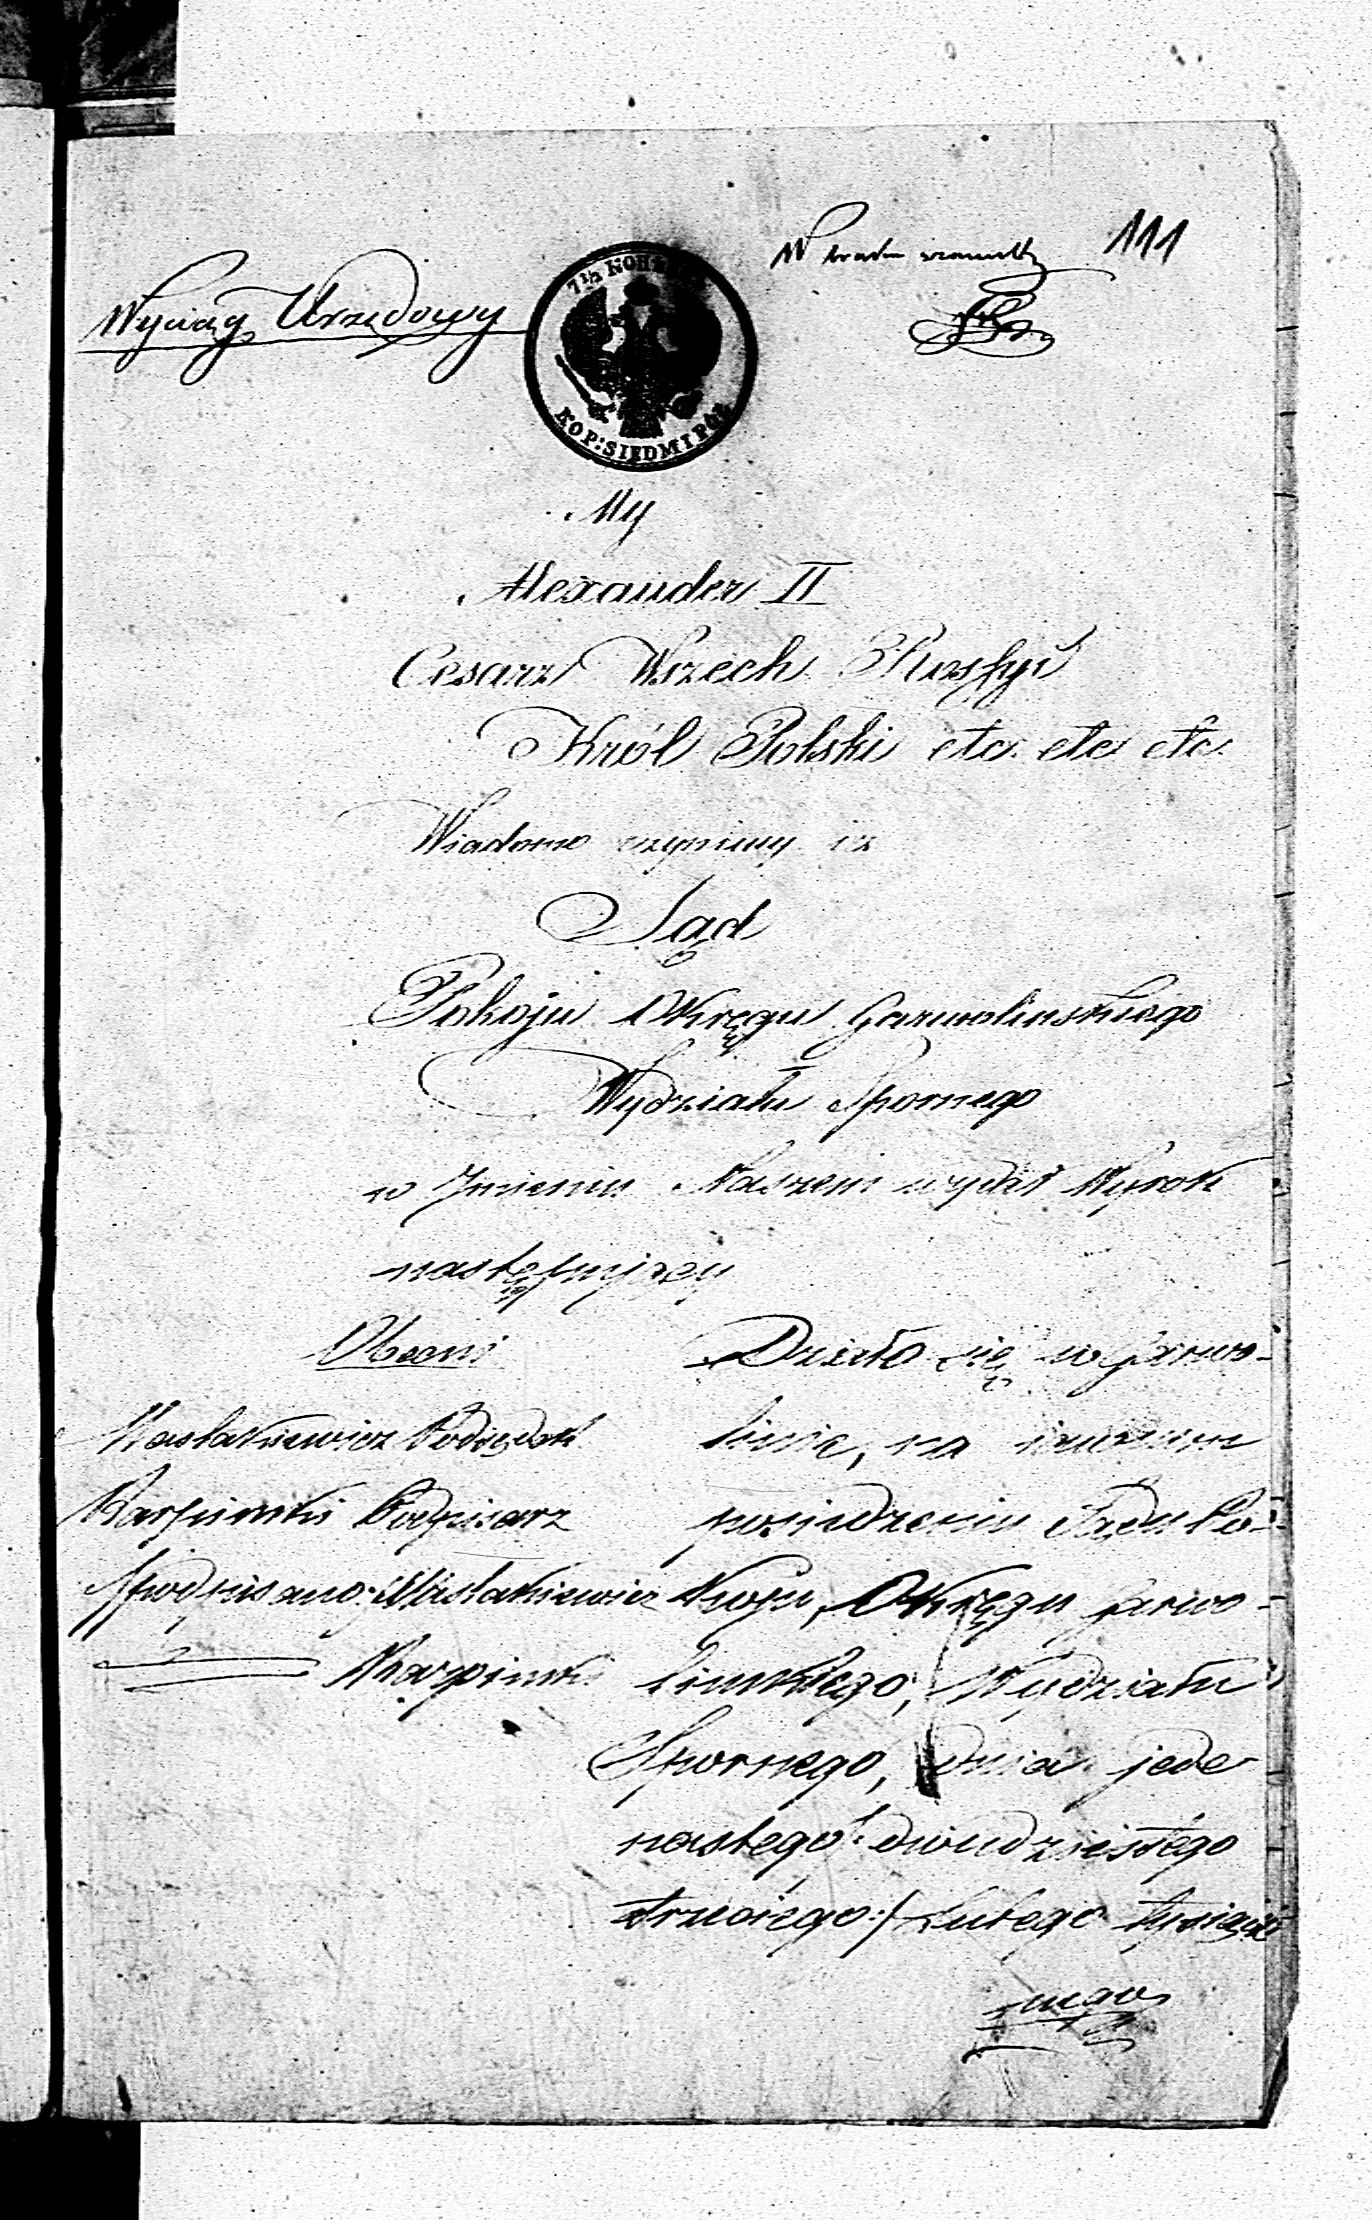 111
Wyciąg Urzędowy
7½ KOP
KOP: SIEDM I PÓŁ
My
Alexander II
Cesarz Wszech Rossyi
Król Polski etc. etc etc.
Wiadomo czynimy iż
Sąd
Pokoju Okręgu Garwolinskiego
Wydziału Spornego
w Imieniu Naszem wydał Wyrok
następujący
Obecni
Podsędek
Karpinski Podpisarz
podpisano:
Karpinski
Działo się w Garwo-
linie, na
posiedzeniu Sądu Po-
koju, Okręgu Garwo-
linskiego, Wydziału
Spornego, dnia jede-
nastego /: dwudziestego
trzeciego :/ Lutego tysiąc